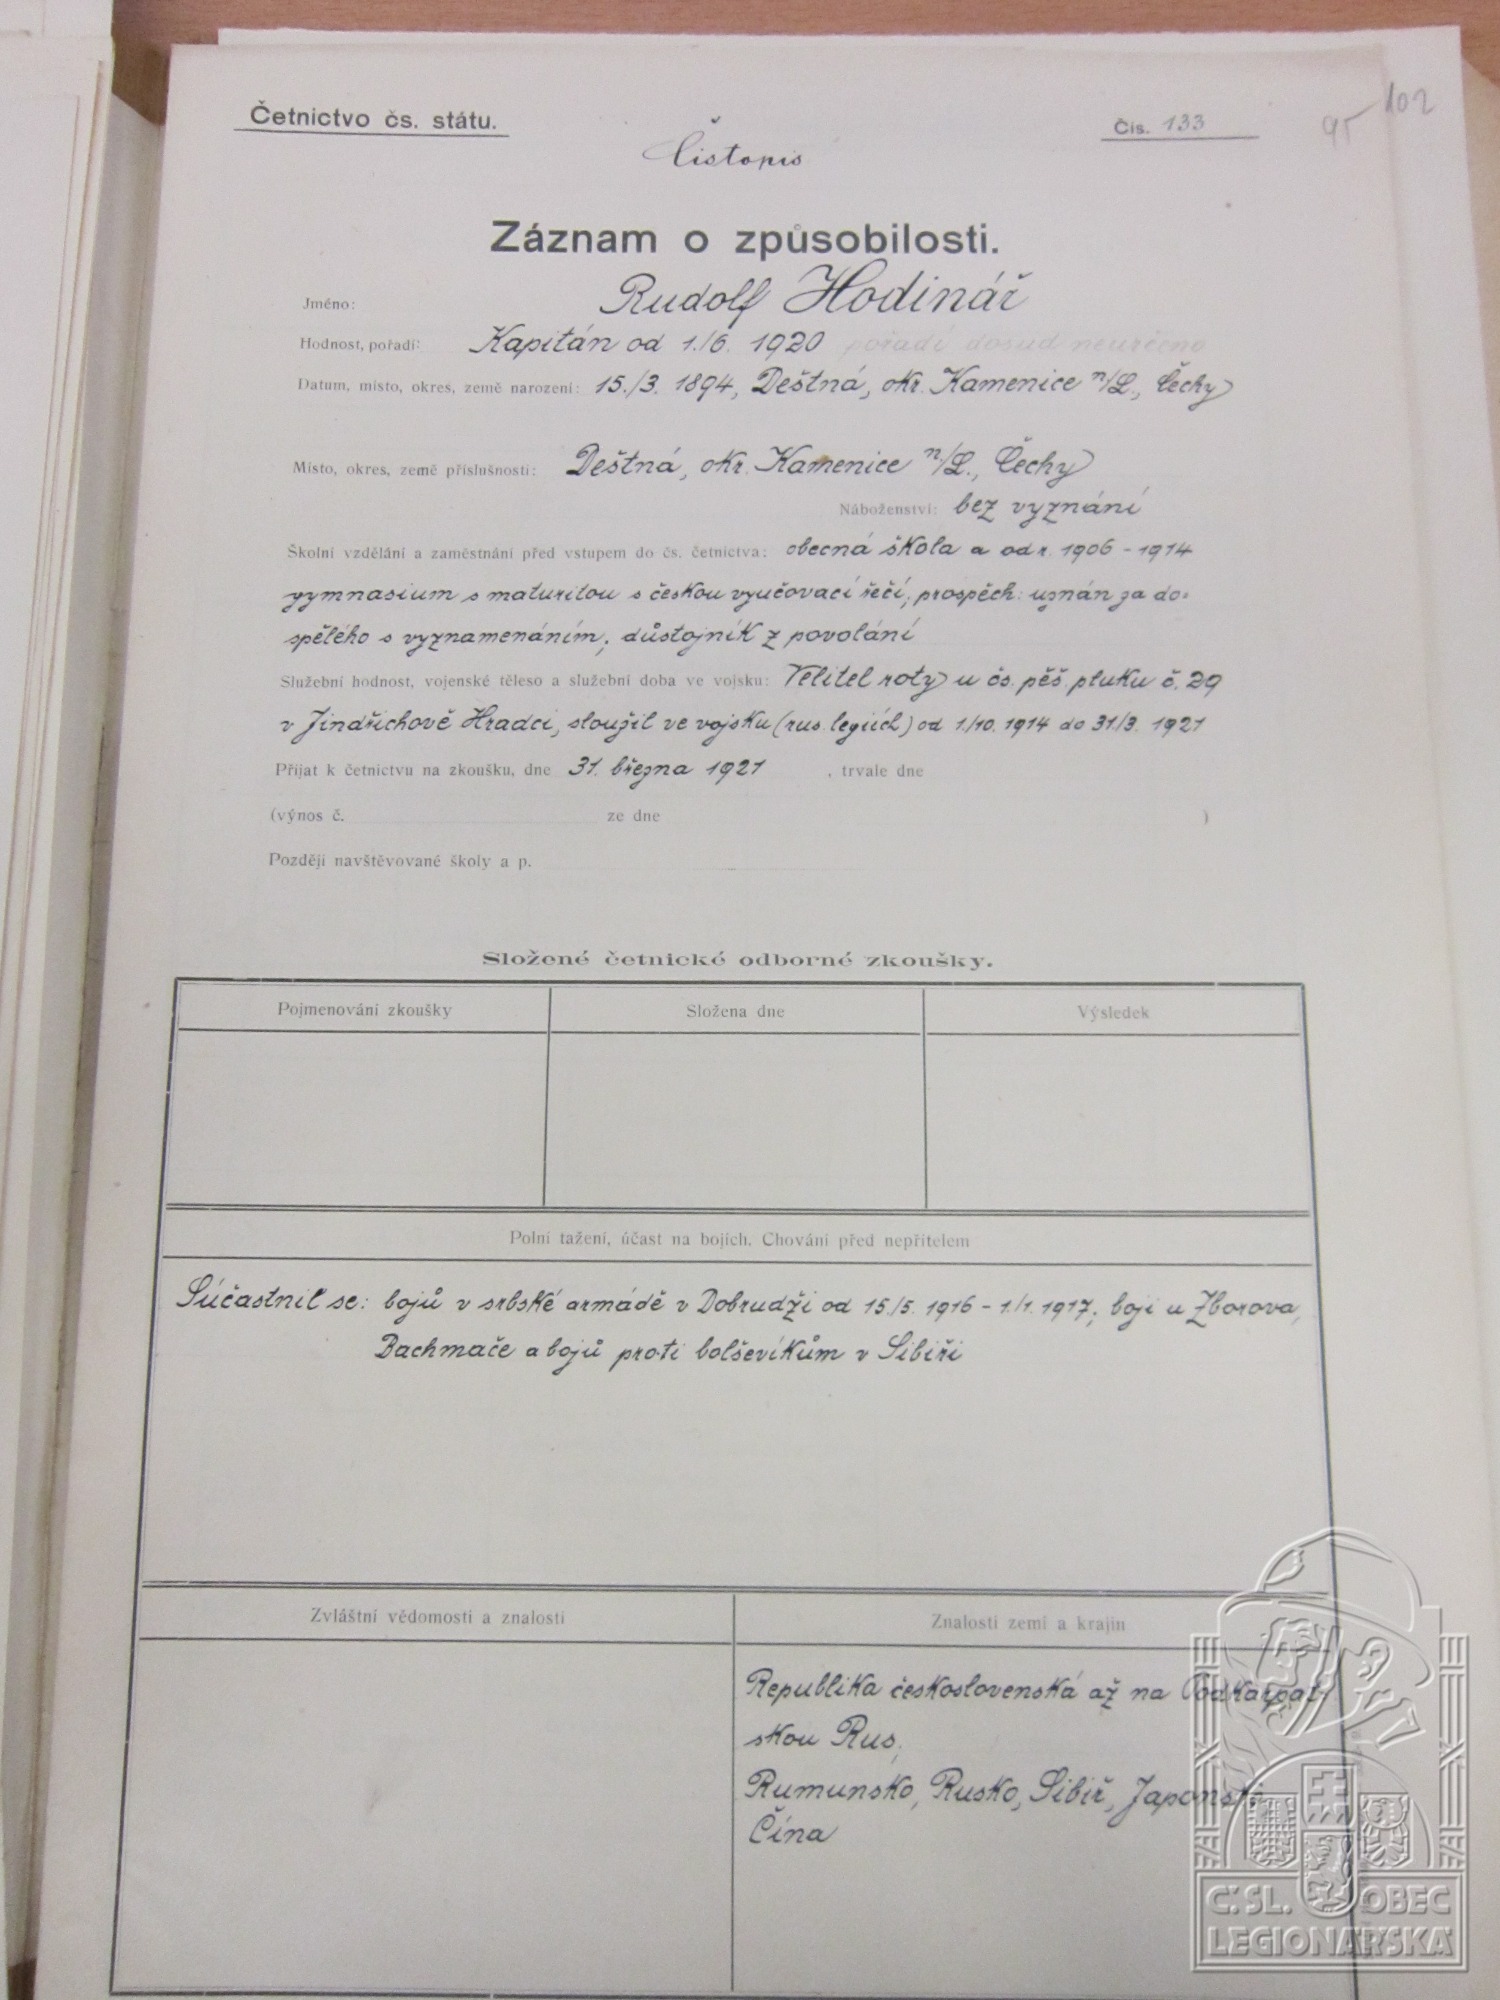 Četnictvo čs. státu.
Čís. 133
95
102
Čistopis
Záznam o způsobilosti.
Jméno: Rudolf Hodinář
Hodnost, pořadí: Kapitán od 1./6. 1920 pořadí dosud neurčeno
Datum, místo, okres, země narození: 15./3. 1894, Deštná, okr. Kamenice n/L., Čechy
Místo, okres, země příslušnosti: Deštná, okr. Kamenice n/L., Čechy
Náboženství: bez vyznání
Školní vzdělání a zaměstnání před vstupem do čs. četnictva: obecná škola a od r. 1906 - 1914
gymnasium s maturitou s českou vyučovací řečí; prospěch: uznán za do-
spělého s vyznamenáním; důstojník z povolání
Služební hodnost, vojenské těleso a služební doba ve vojsku: Velitel roty u čs. pěš. pluku č. 29
v Jindřichově Hradci, sloužil ve vojsku (rus. legiích) od 1./10. 1914 do 31/3. 1921
Přijat k četnictvu na zkoušku, dne 31. března 1921, trvale dne
(výnos č. ze dne )
Později navštěvované školy a p.
Složené četnické odborné zkoušky.
Pojmenování zkoušky Složena dne Výsledek
Polní tažení, účast na bojích. Chování před nepřítelem
Súčastnil se: bojů v srbské armádě v Dobrudži od 15./5. 1916 - 1./1. 1917; boji u Zborova,
Bachmače a bojů proti bolševíkům v Sibiři
Zvláštní vědomosti a znalosti Znalosti zemí a krajin
Republika československá až na Podkarpat-
skou Rus;
Rumunsko, Rusko, Sibiř, Japonsko
Čína
Č.SL. OBEC
LEGIONÁŘSKÁ